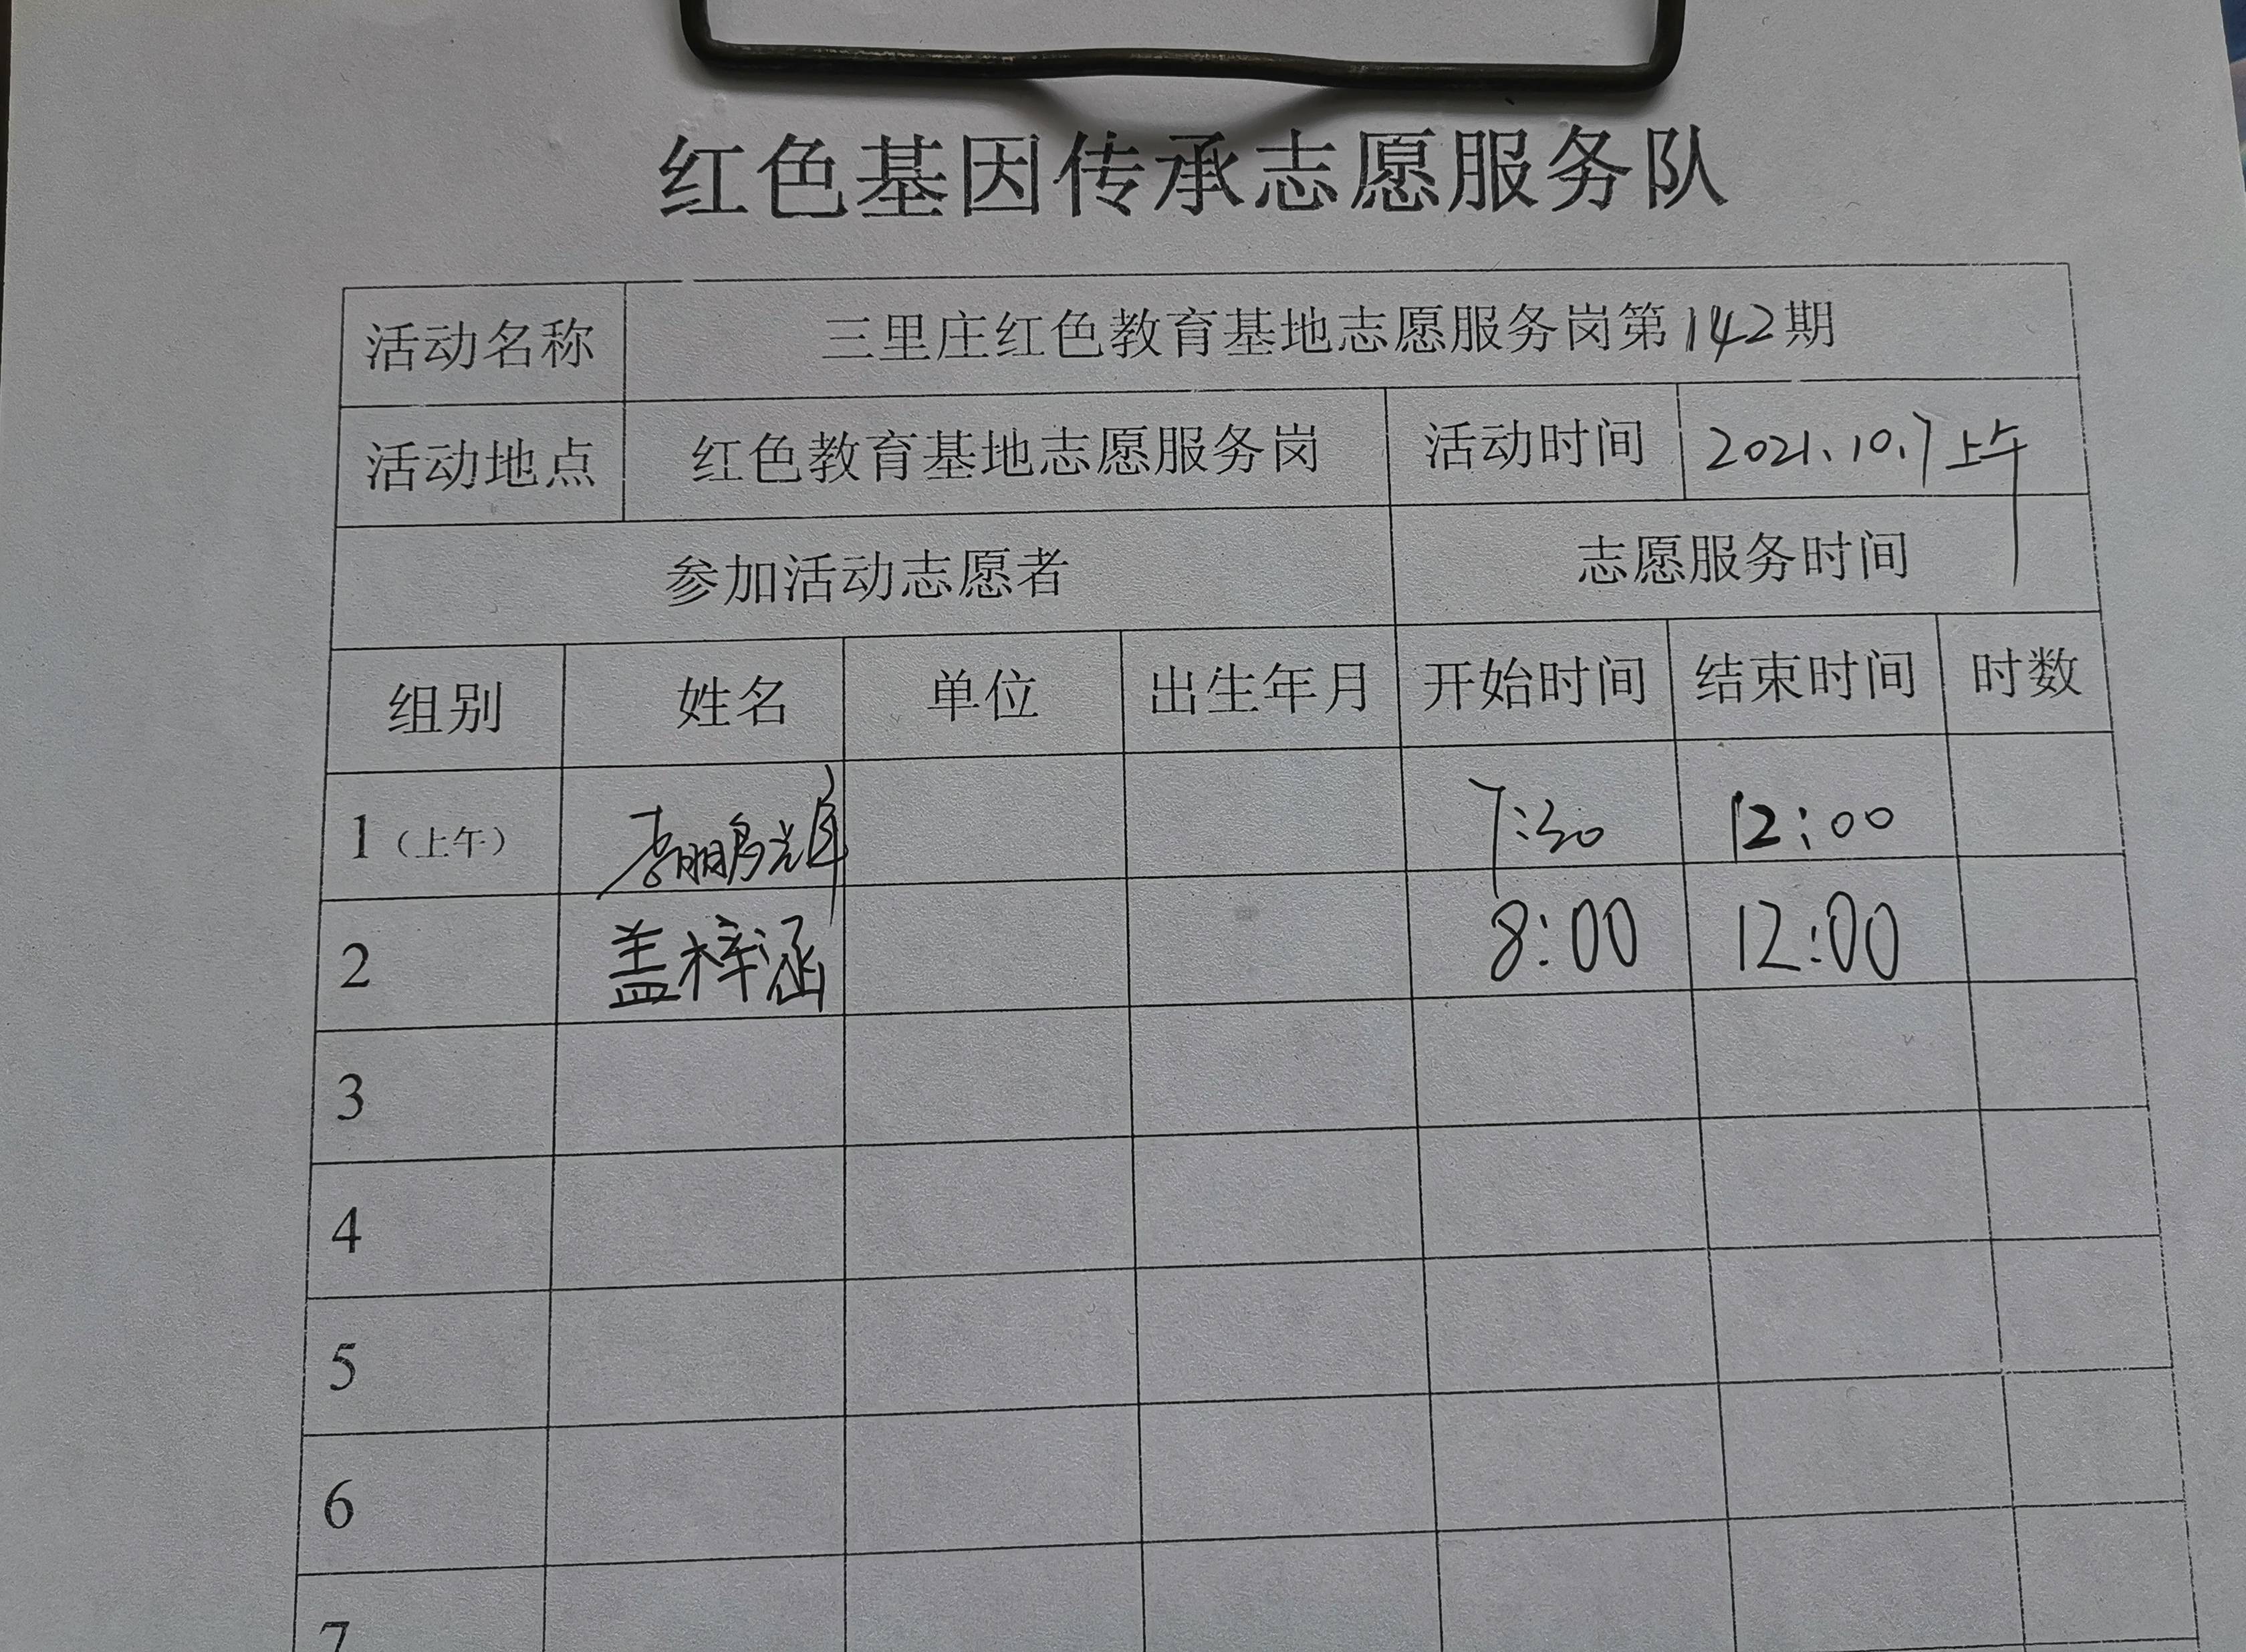 红色基因传承志愿服务队
活动名称 三里庄红色教育基地志愿服务岗第142期
活动地点 红色教育基地志愿服务岗 活动时间 2021.10.7上午
参加活动志愿者 志愿服务时间
组别 姓名 单位 出生年月 开始时间 结束时间 时数
1（上午） 李鹏辉 7:30 12:00
2 盖梓涵 8:00 12:00
3
4
5
6
7